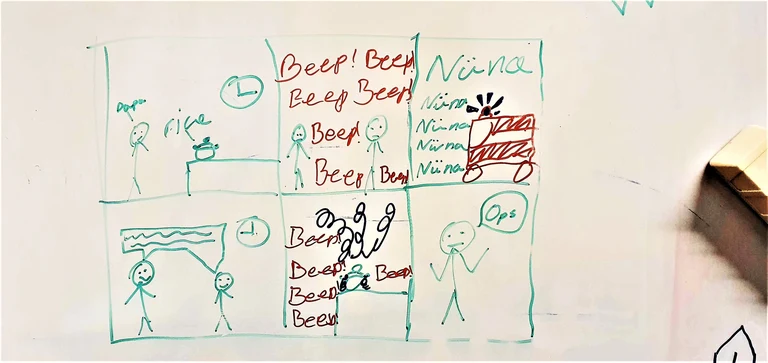 rice
Beep! Beep!
Beep Beep!
Beep!
Beep Beep!
Nüna
Nüna
Nüna
Nüna
Nüna
Beep!
Beep! Beep!
Beep!
Beep!
Ops